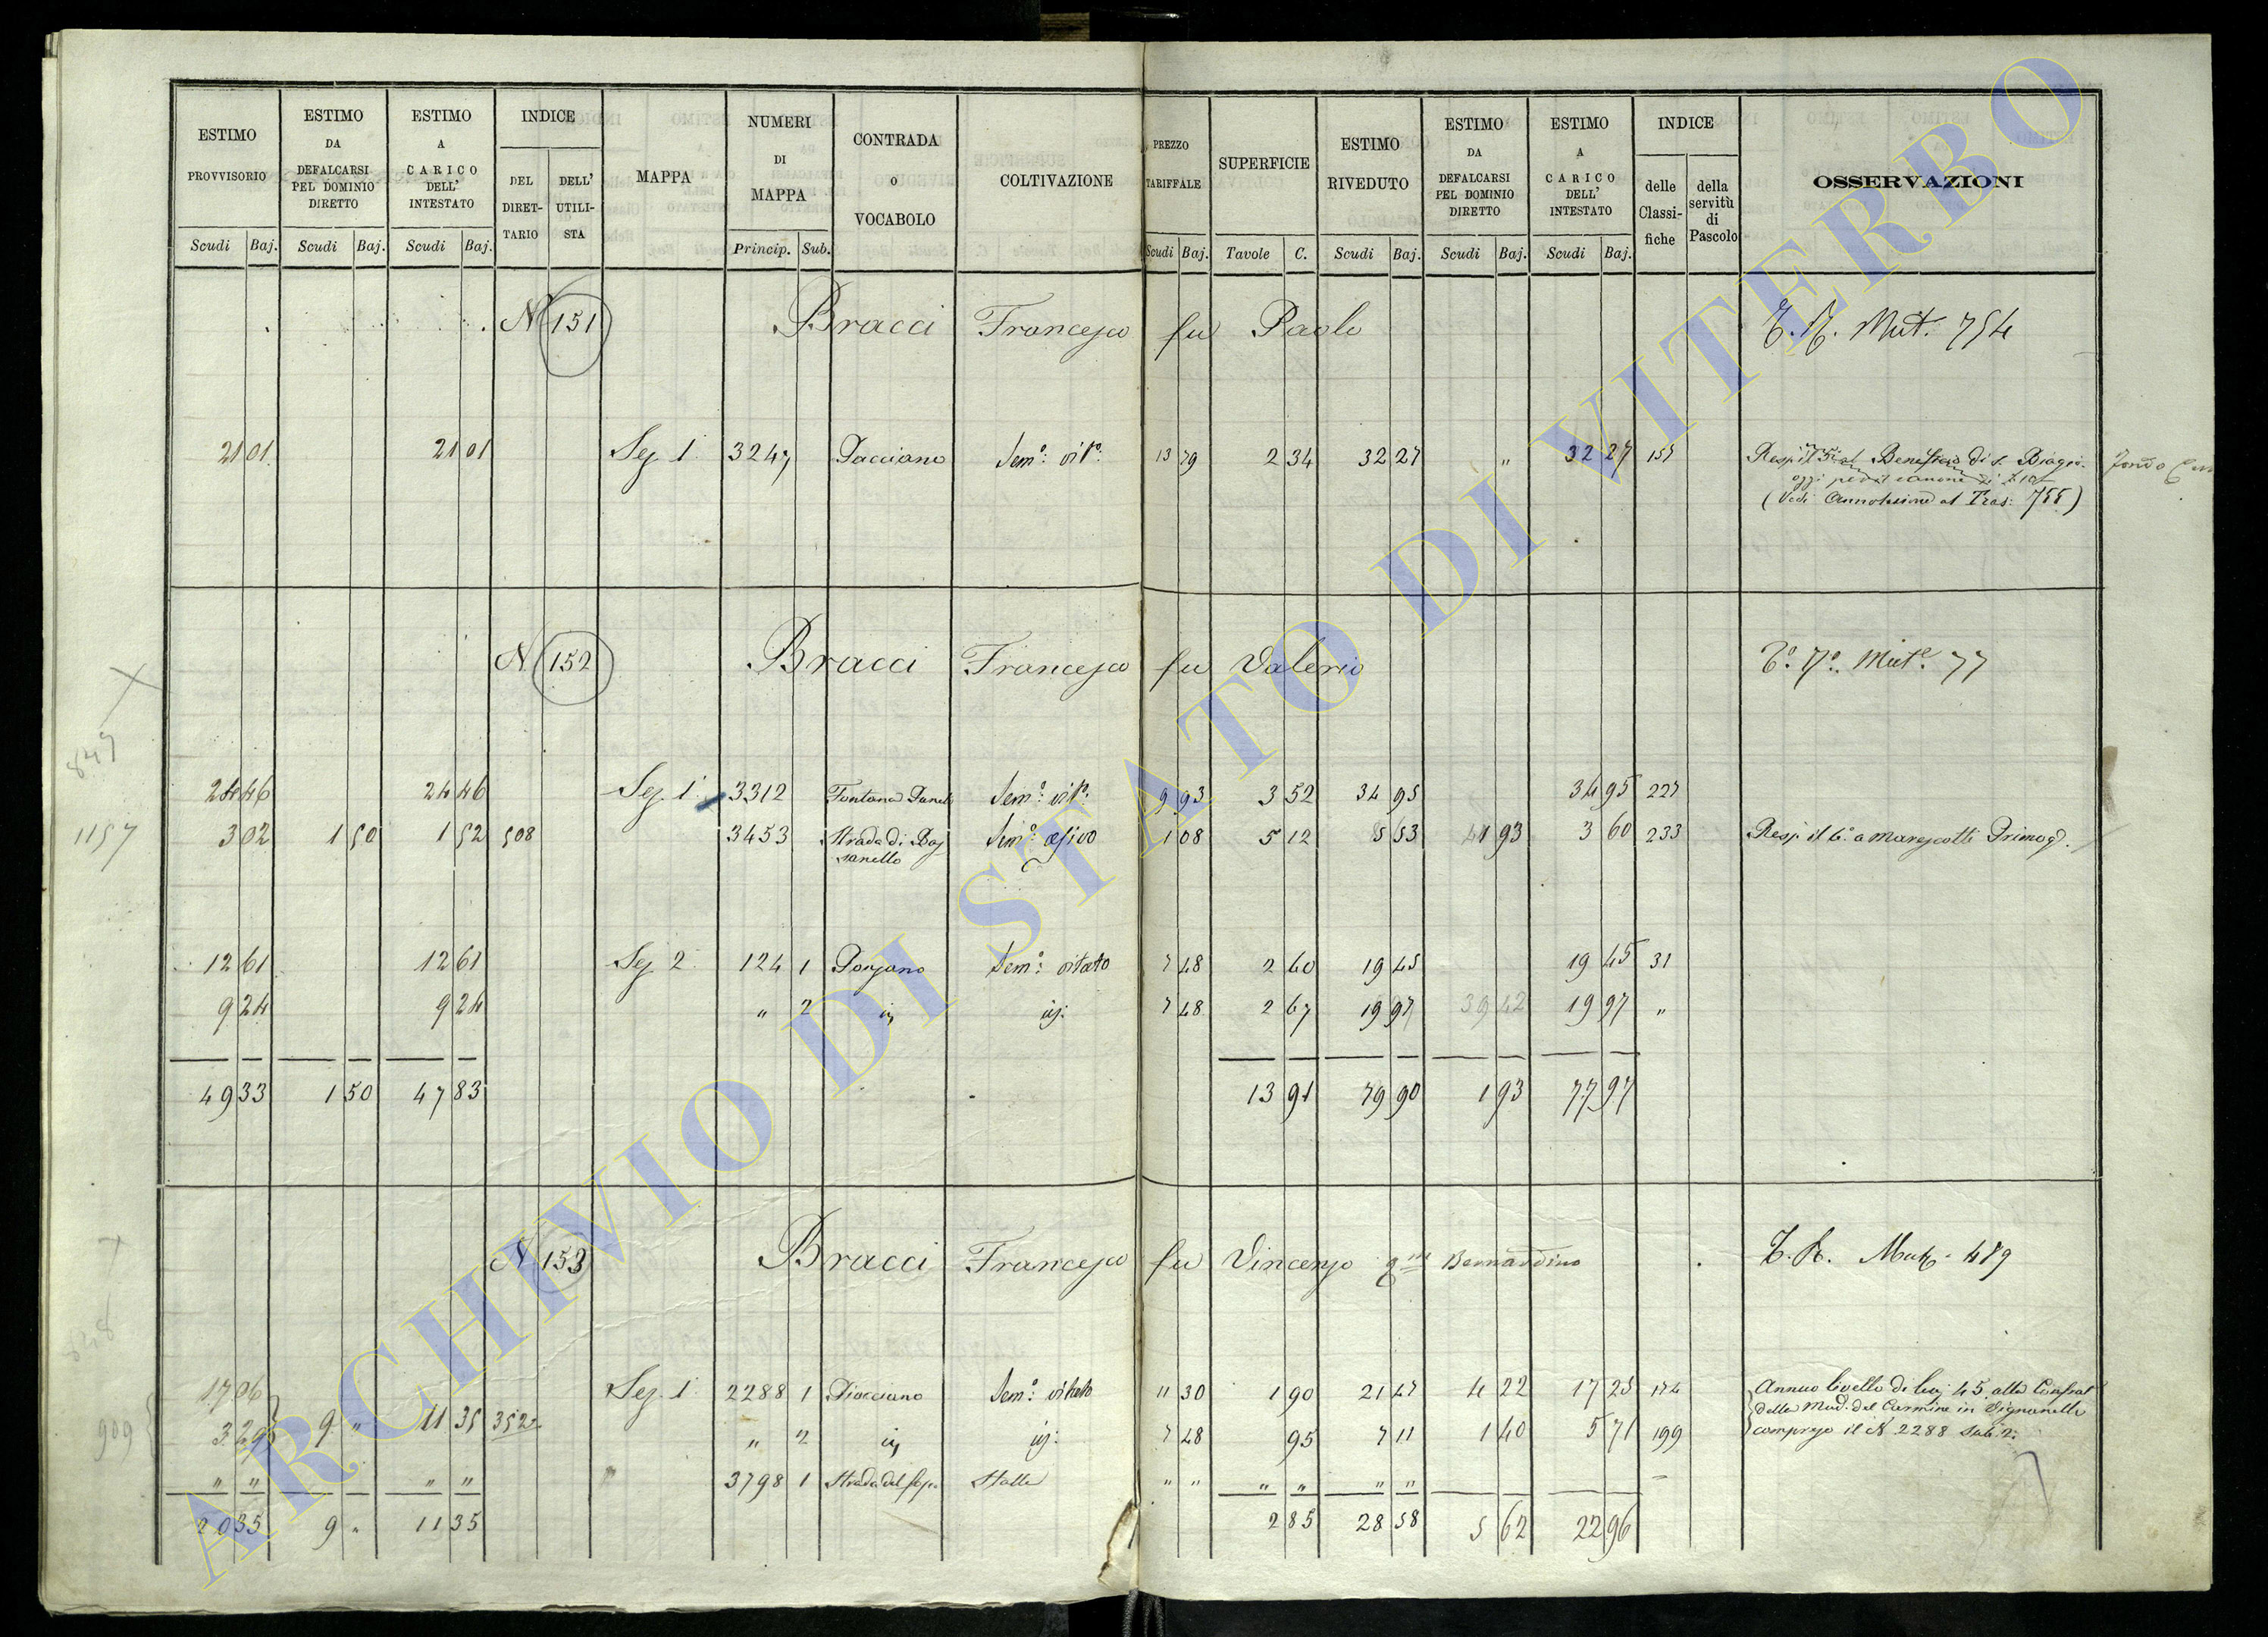 ESTIMO PROVVISORIO Scudi Baj.
ESTIMO DA DEFALCARSI PEL DOMINIO DIRETTO Scudi Baj.
ESTIMO A CARICO DELL' INTESTATO Scudi Baj.
INDICE DEL DIRET-TARIO DELL' UTILI-STA
MAPPA
NUMERI DI MAPPA Princip. Sub.
CONTRADA o VOCABOLO
COLTIVAZIONE
PREZZO TARIFFALE Scudi Baj.
SUPERFICIE Tavole C.
ESTIMO RIVEDUTO Scudi Baj.
ESTIMO DA DEFALCARSI PEL DOMINIO DIRETTO Scudi Baj.
ESTIMO A CARICO DELL' INTESTATO Scudi Baj.
INDICE delle Classi-fiche della servitù di Pascolo
OSSERVAZIONI
N 151 Bracci Francesco fu Paolo Mut. 754
21 01 21 01 Sez. 1 3247 Pacciano Sem.o vit.o 13 79 2 34 32 27 " 32 27 155 Resp. Beneficio di S. Biagio
oggi canone di
(Vedi Annotazione al Tras. 755)
N 152 Bracci Francesco fu Valerio Mut.e 77
849
24 46 24 46 Sez. 1 3312 Fontana Sem.o vit.o 9 93 3 52 34 95 34 95 227
1157 3 02 1 50 1 52 508 3453 Strada di Bas
sanello Sem.o 1 08 5 12 5 53 1 93 3 60 233 Resp. il 6.o a Marescotti Primog.
12 61 12 61 Sez. 2 124 1 Sem.o vitato 7 48 2 60 19 45 19 45 31
9 24 9 24 " 2 id. 7 48 2 67 19 97 39 42 19 97 "
49 33 1 50 47 83 13 91 79 90 1 93 77 97
N 153 Bracci Francesco fu Vincenzo qm Bernardino 489
17 06 Sez. 1 2288 1 Sem.o vitato 11 30 1 90 21 47 4 22 17 25 174 Annuo livello di baj. 45 alla
909 3 29 9 " 11 35 352 " 2 id. 7 48 95 7 11 1 40 5 71 199 della Mad. del Carmine in Vignanello
compreso il N 2288 sub. 2.
" " " " 3798 1 Strada del Stalla " " " " " "
20 35 9 " 11 35 2 85 28 58 5 62 22 96
ARCHIVIO DI STATO DI VITERBO